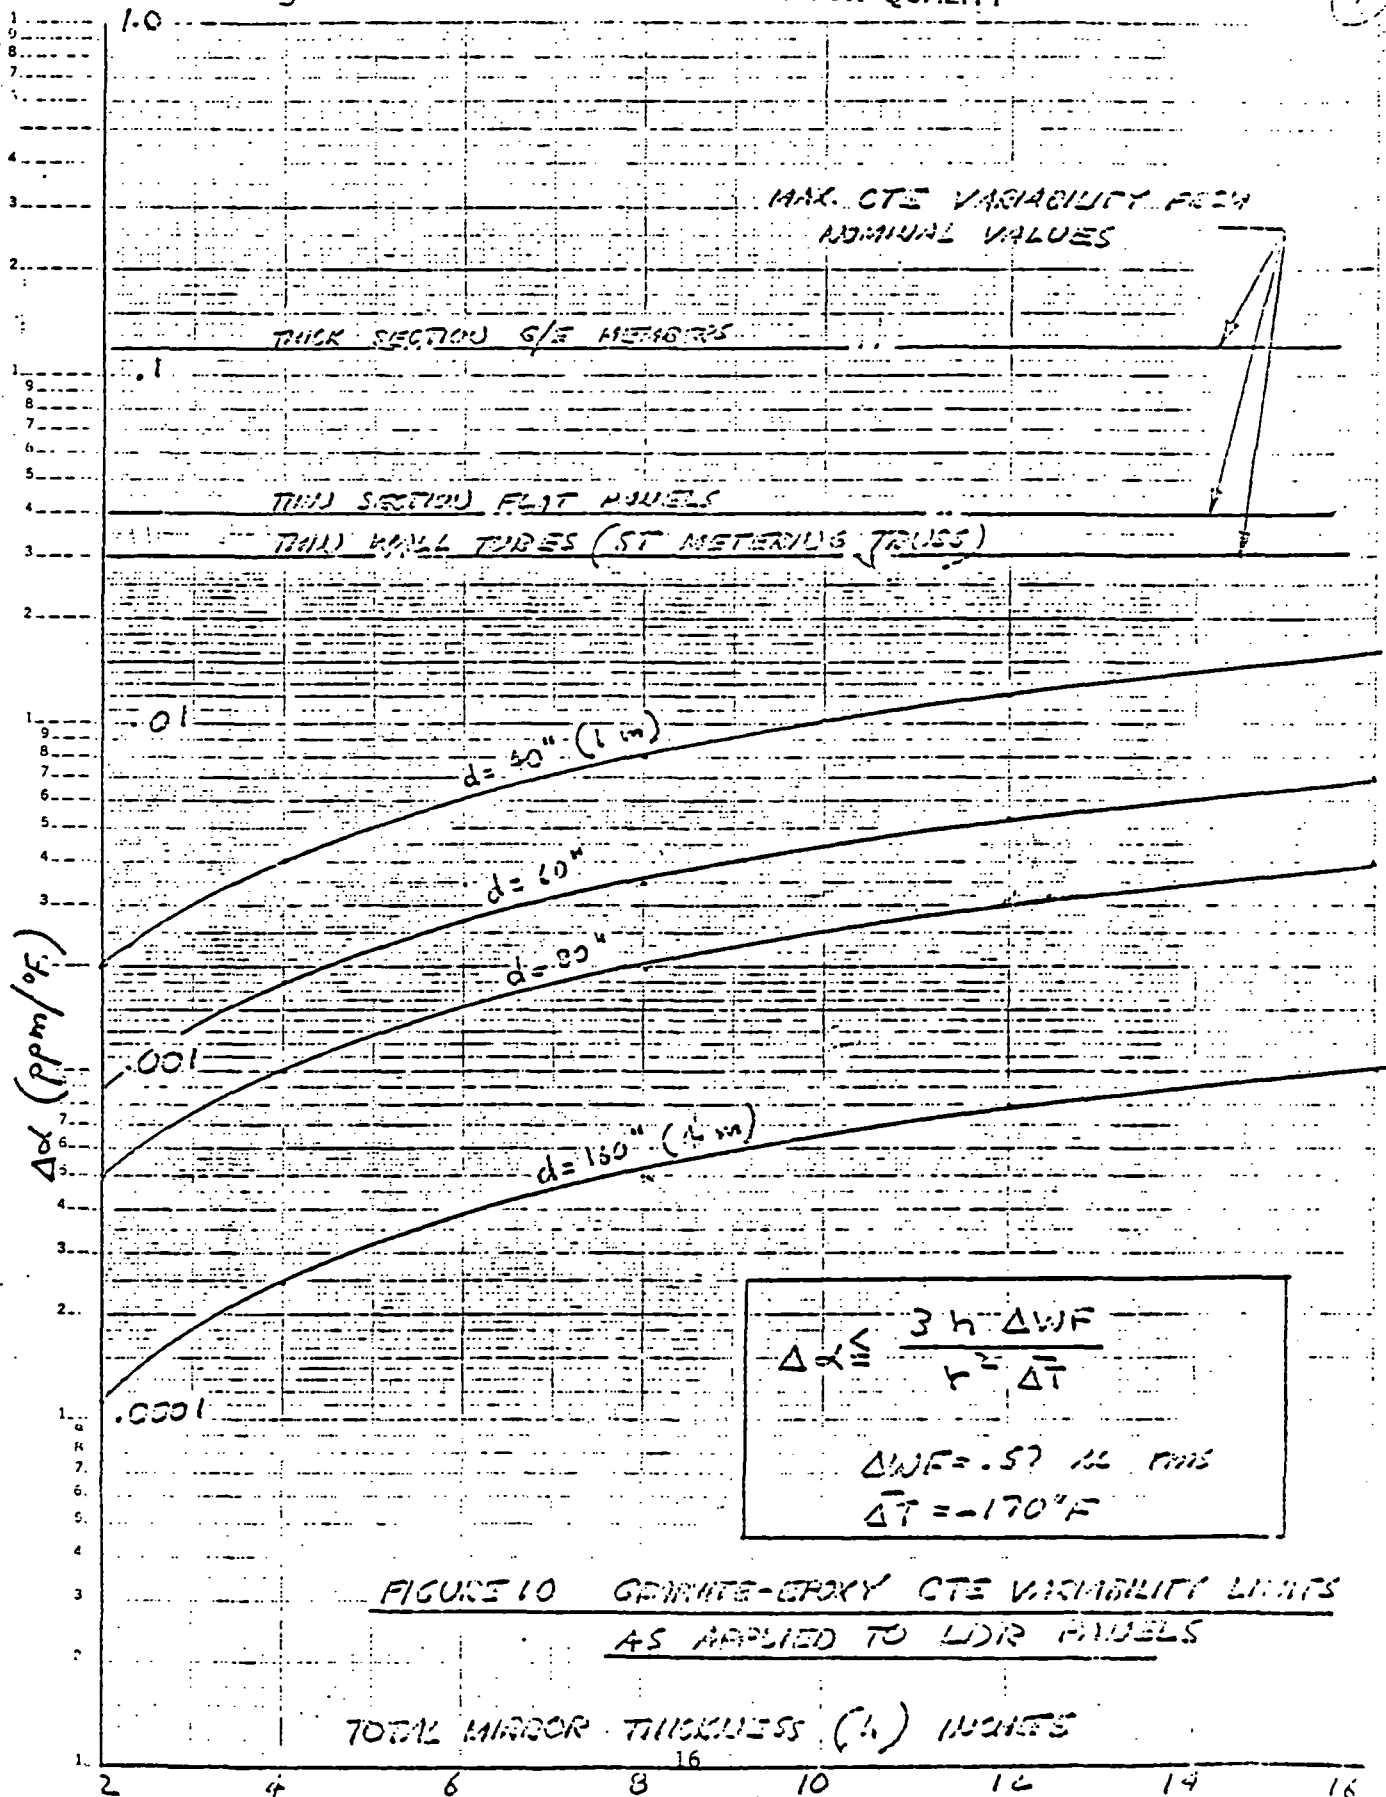 QUALITY
1.0
MAX. CTE VARIABILITY FROM
NOMINAL VALUES
THICK SECTION G/E MEMBERS
.1
THIN SECTION FLAT PANELS
THIN WALL TUBES (ST METERING TRUSS)
.01
d= 40" (1 m)
d= 60"
d= 80"
.001
d= 160" (4 m)
.0001
Δα (ppm/°F)
1
9
8
7
4
3
2
1
9
8
7
6
5
4
3
2
1
9
8
7
6
5
4
3
7
6
5
4
3
2
1
8
7
6
5
4
3
2
1
Δα ≤ 3 h ΔWF / r² ΔT̄
ΔWF = .57 rms
ΔT̄ = -170°F
FIGURE 10 GRAPHITE-EPOXY CTE VARIABILITY LIMITS
AS APPLIED TO LDR PANELS
TOTAL MIRROR THICKNESS (h) INCHES
16
2 4 6 8 10 12 14 16